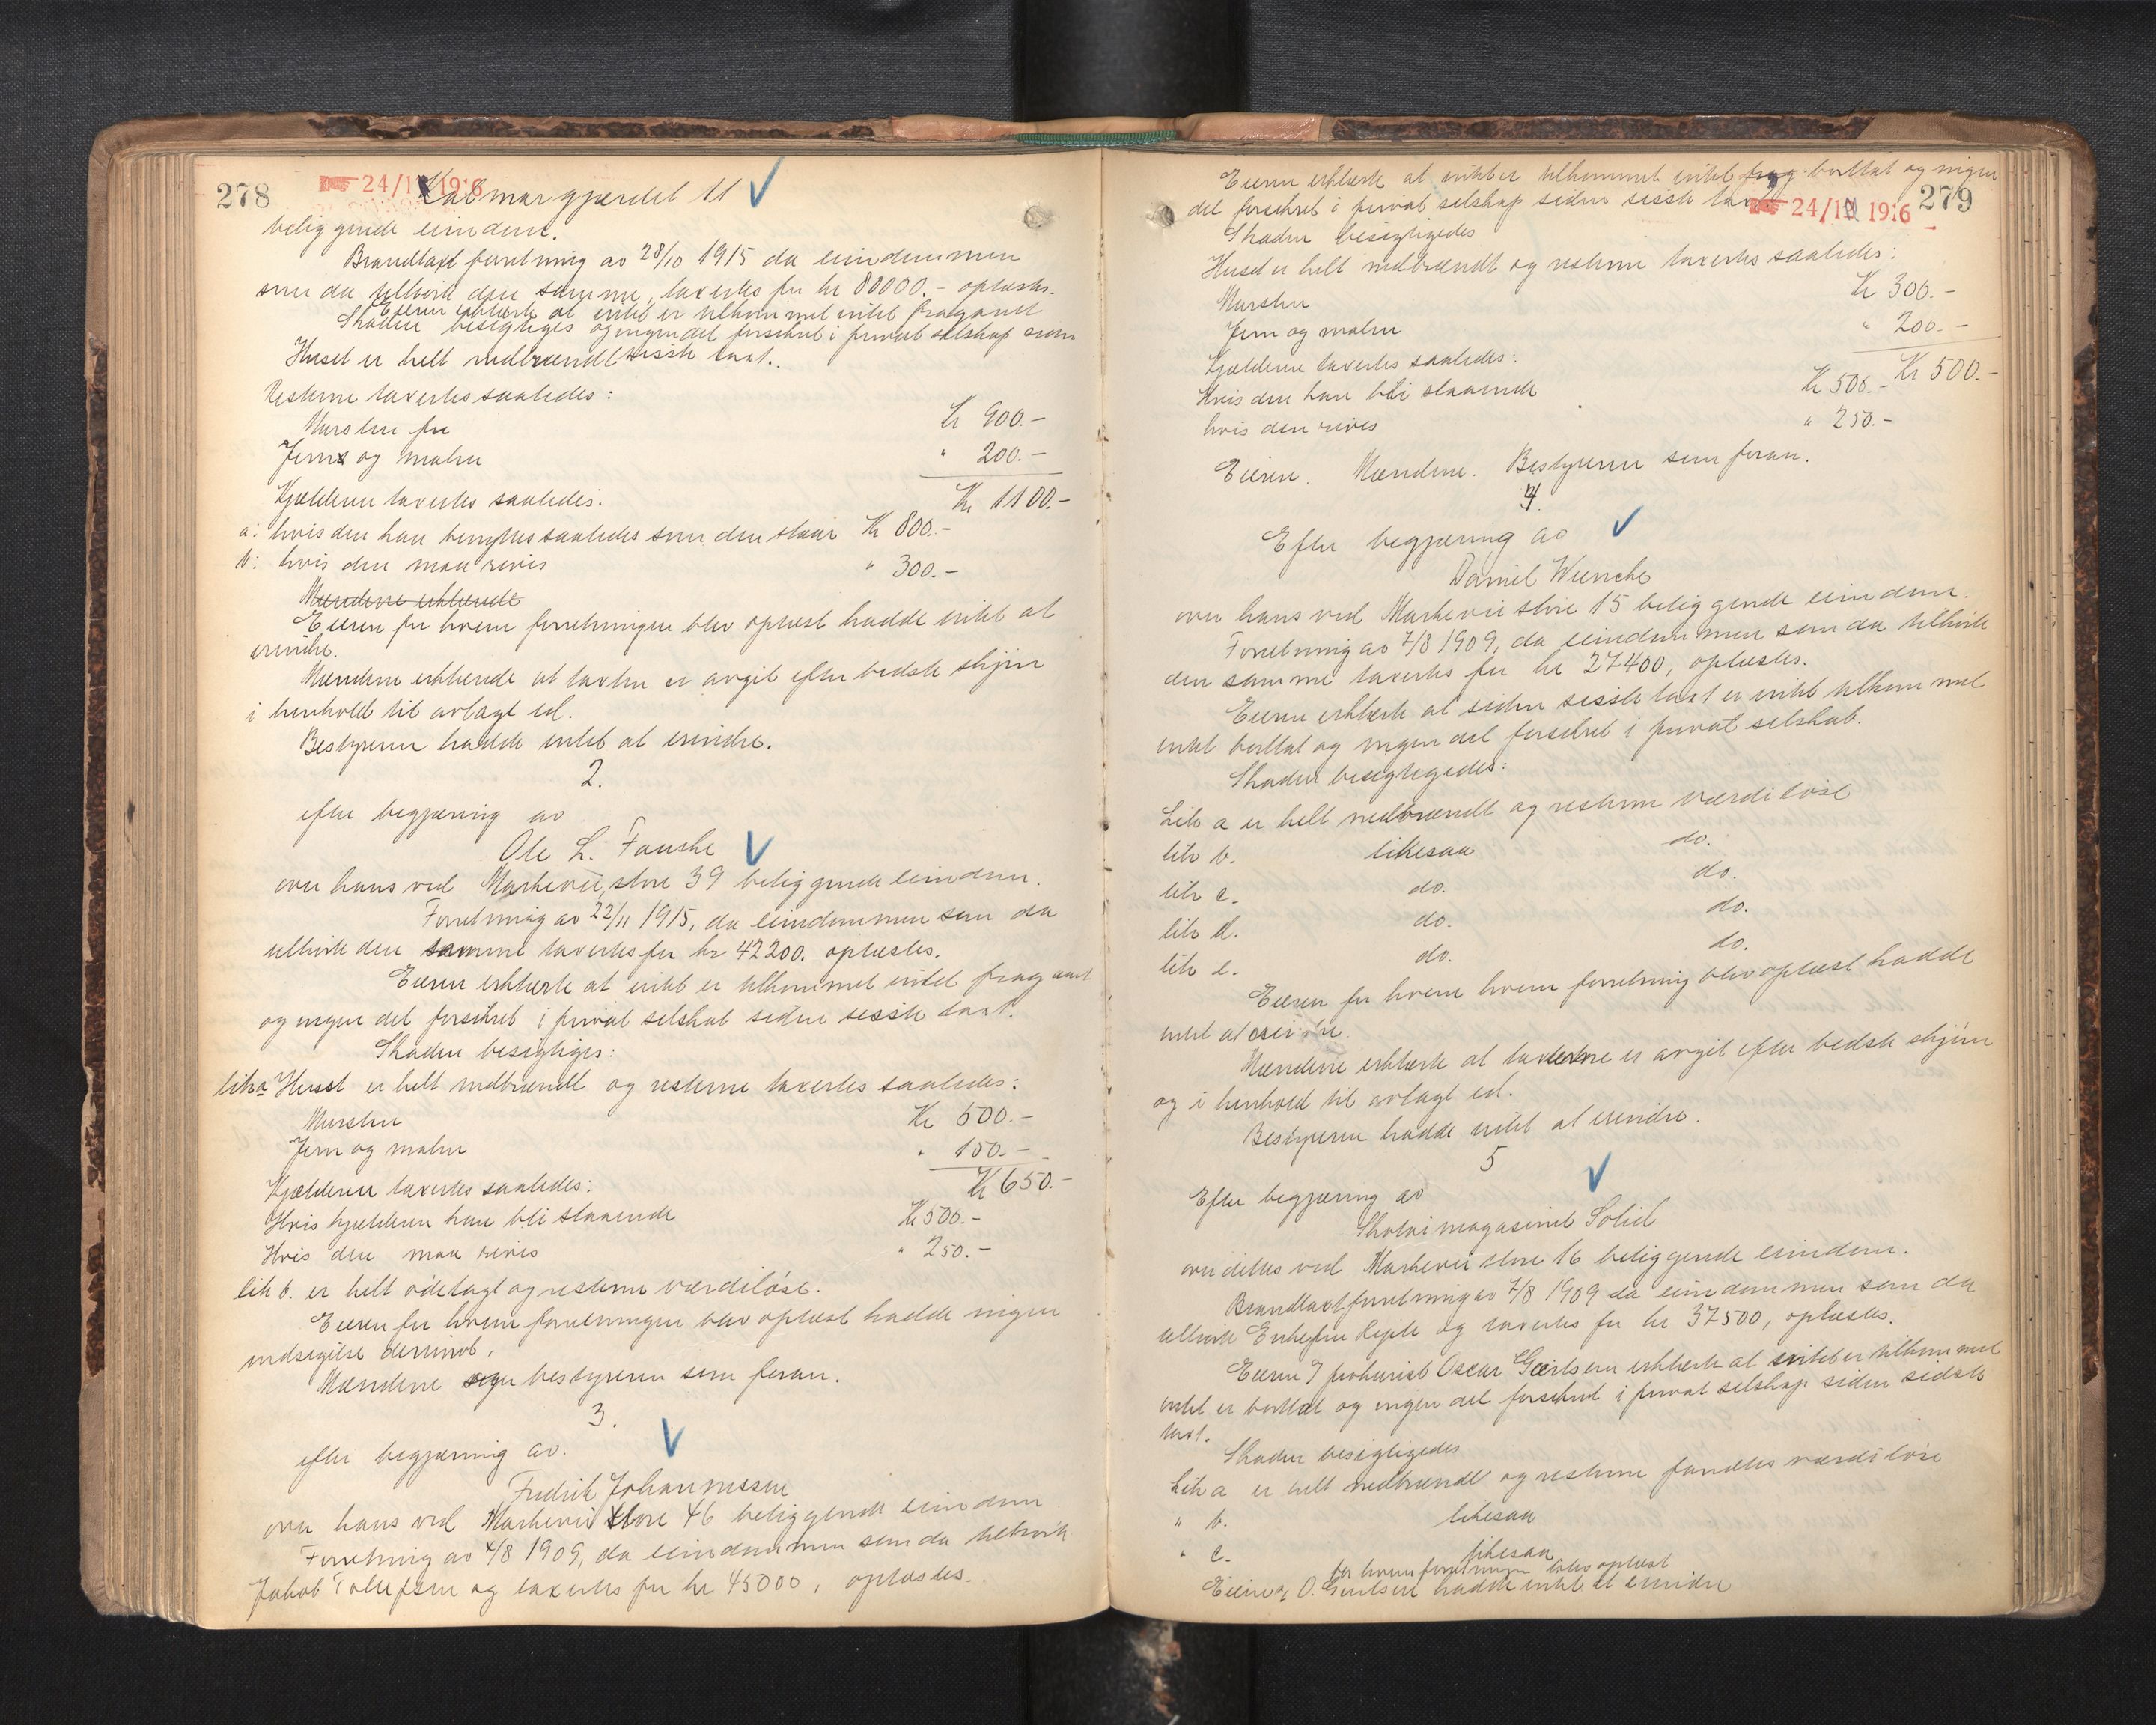 278
24/1 1916
Kalmargjærdet 11
beliggende eiendom.
Brandtaxt forretning av 28/10 1915 da eiendommen
som da tilhørte den samme, taxertes for kr 80000.- oplæstes.
Eieren erklærte at intet er tilkommet intet fragaaet
Skaden besigtiges og ingen del forsikret i privat selskap siden
Huset er helt nedbrændt sisste taxt.
Resterne taxertes saaledes:
Mursten for Kr 900.-
Jern og malm " 200.-
Kjælderen taxertes saaledes. Kr 1100.-
a: hvis den kan benyttes saaledes som den staar Kr 800.-
b: hvis den maa rives " 300.-
Mændene erklærede
Eieren for hvem forretningen blev oplæst hadde intet at
erindre.
Mændene erklærede at taxten er avgit efter bedste skjøn
i henhold til avlagt ed.
Bestyreren hadde intet at erindre.
2.
efter begjæring av
Ole L. Fauske
over hans ved Markeveie, store 39 beliggende eiendom.
Forretning av 22/11 1915, da eiendommen som da
tilhørte den samme taxertes for kr 42200. oplæstes.
Eieren erklærte at intet er tilkommet intet fragaaet
og ingen del forsikret i privat selskab siden sisste taxt.
Skaden besigtiges:
litr a Huset er helt nedbrændt og resterne taxertes saaledes:
Mursten Kr 500.-
Jern og malm " 150.-
Kr 650.-
Kjælderen taxertes saaledes:
Hvis kjælderen kan bli staaende Kr 500.-
Hvis den maa rives " 250.-
litr b. er helt ødelagt og resterne værdiløse.
Eieren for hvem forretningen blev oplæst hadde ingen
indsigelse derimot.
Mændene og bestyreren som foran.
3.
efter begjæring av.
Fredrik Johannessen
over hans ved Markeveie store 46 beliggende eiendom
Forretning av 4/8 1909, da eiendommen som da tilhørte
Jakob Tollefsen og taxertes for kr 45000, oplæstes.
279
24/1 1916
Eieren erklærte at intet er tilkommet intet borttat og ingen
del forsikret i privat selskap siden sisste taxt.
Skaden besigtigedes
Huset er helt nedbrændt og resterne taxertes saaledes:
Mursten Kr 300.-
Jern og malm " 200.-
Kr 500.-
Kjælderen taxertes saaledes:
Hvis den kan bli staaende Kr 500.-
hvis den rives " 250.-
Eieren. Mændene. Bestyreren som foran.
4.
Efter begjæring av
Daniel Wiencke
over hans ved Markeveie store 15 beliggende eiendom.
Forretning av 7/8 1909, da eiendommen som da tilhørte
den samme taxertes for kr 27400, oplæstes.
Eieren erklærte at siden sisste taxt er intet tilkommet
intet borttat og ingen del forsikret i privat selskab.
Skaden besigtigedes:
Litr a er helt nedbrændt og resterne værdiløse
litr b. likesaa do.
litr c. do. do.
litr d. do. do.
litr e. do. do.
Eieren for hvem hvem forretning blev oplæst hadde
intet at erindre.
Mændene erklærte at taxterne er avgit efter bedste skjøn
og i henhold til avlagt ed.
Bestyreren hadde intet at erindre.
5
Efter begjæring av
Skotøimagasinet Solid
over dettes ved Markeveie store 16 beliggende eiendom.
Brandtaxtforretning av 7/8 1909 da eiendommen som da
tilhørte Enkefru og taxertes for kr 37500, oplæstes.
Eieren prokurist Oscar Geertsen erklærte at intet er tilkommet
intet er borttat og ingen del forsikret i privat selskap siden sidste
taxt.
Skaden besigtigedes
Litr a er helt nedbrændt og resterne fandtes værdiløse
" b. likesaa
" c. likesaa
for hvem forretningen blev oplæst
Eieren O. Geertsen hadde intet at erindre